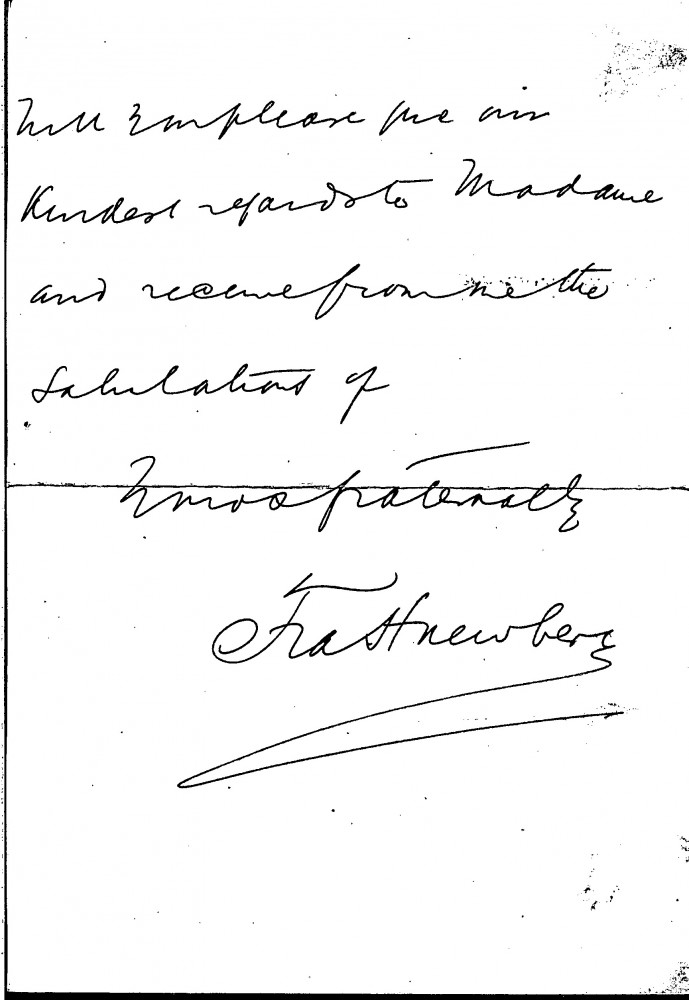 Will you please give our
Kindest regards to Madame
and receive from me the
Salutations of
Yours fraternally
Fra H Newbery